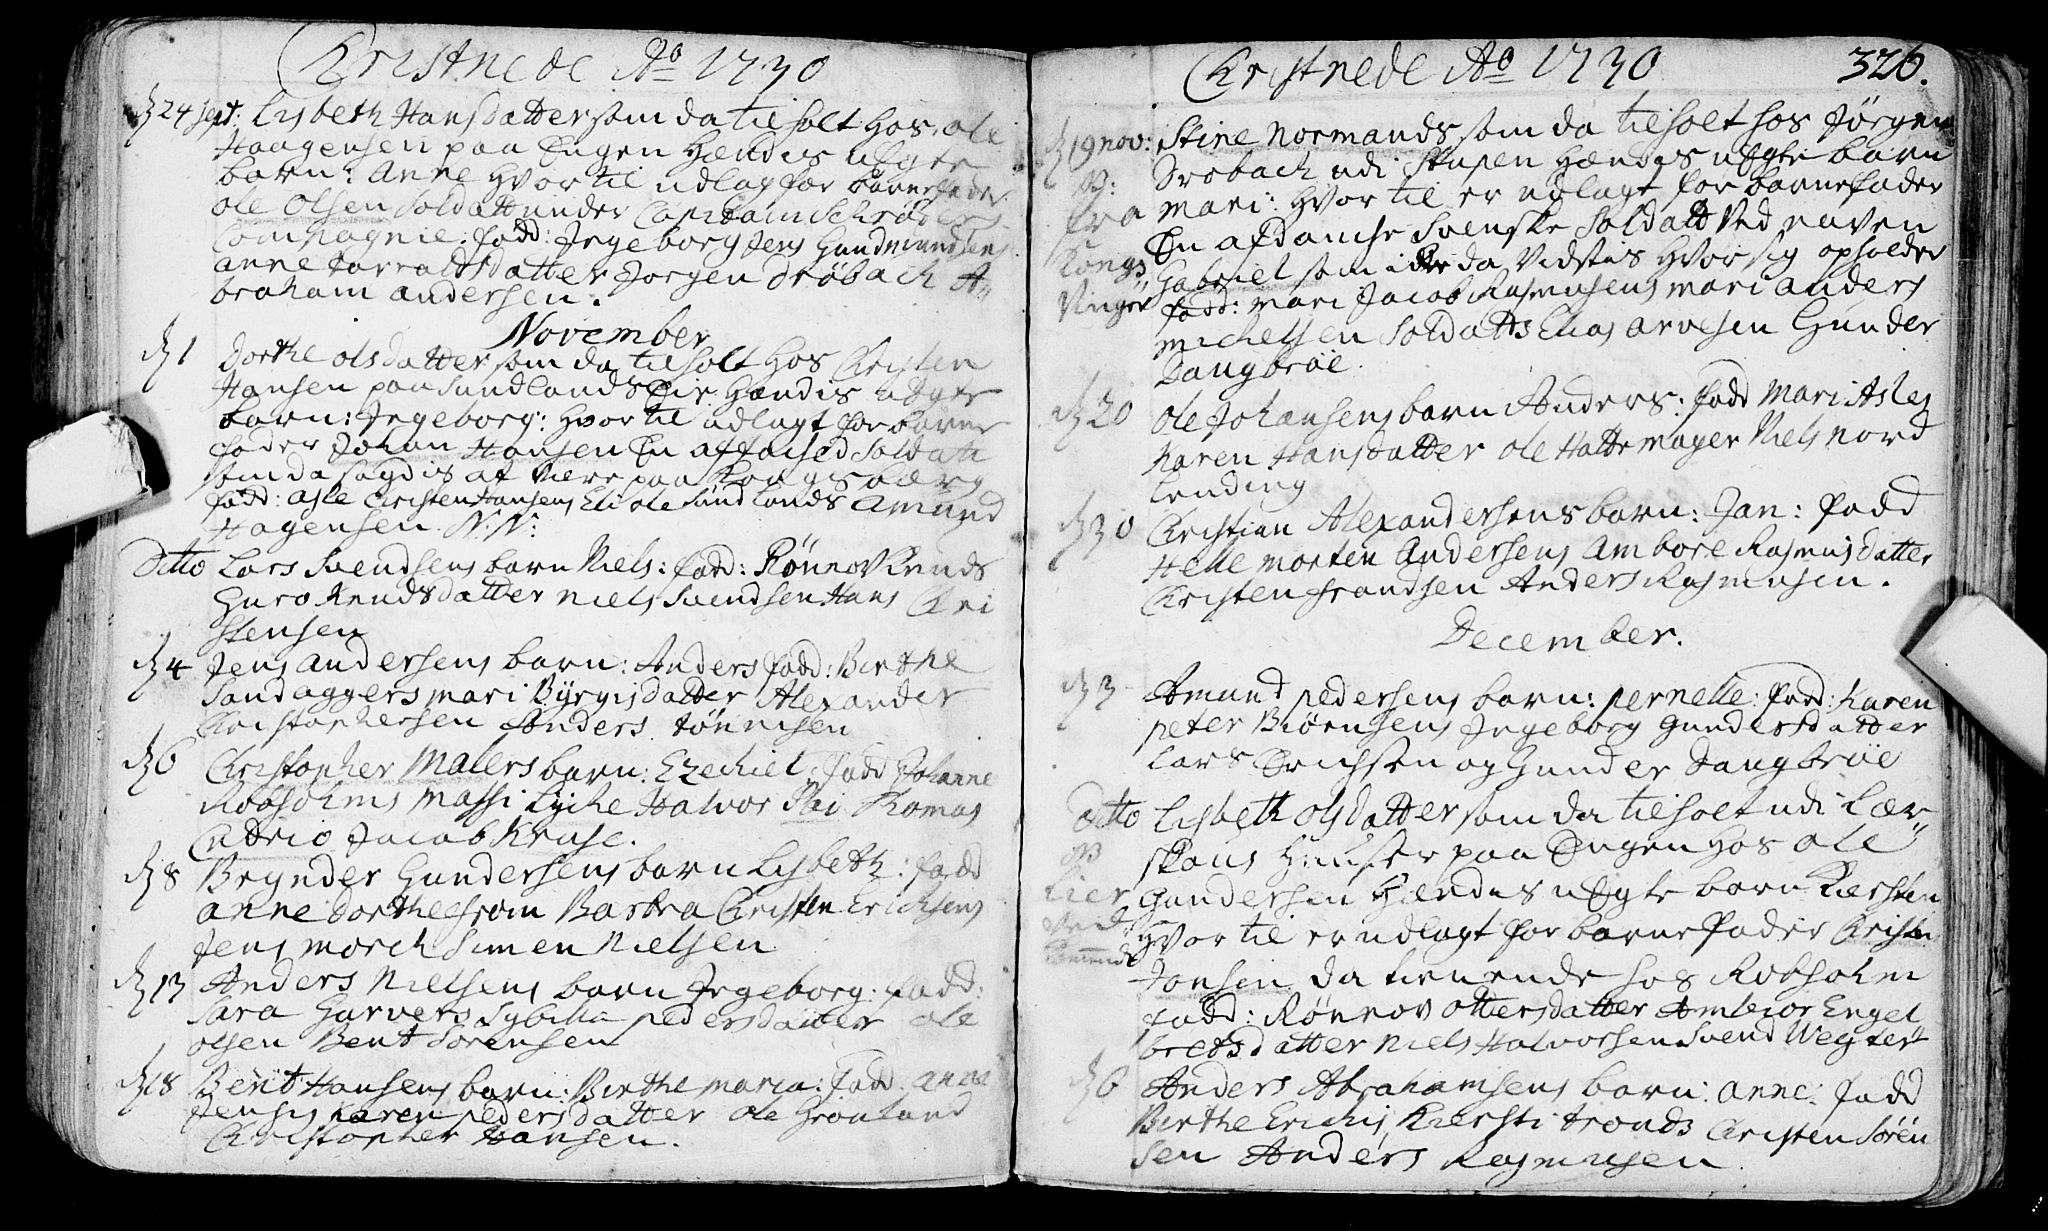 Christnede Ao 1730
d 24 Sept: Lisbeth Hansdatter som da tilholt hos ole
Haagensen paa Engen hændis uEgte
barn: Anne hvor til udlagt for barnefader
ole Olsen Soldatt under Capitain Schrøders
Compagnie. fadd: Jngeborg Jens Gundmundsens
anne Harraldsdatter Jorgen Drøbach A-
braham andersen.
November
d 1 Dorthe olsdatter som da tilholt hos Christen
Hansen paa Sundlands Eie hændis uEgte
barn: Jngeborg: hvor til udlagt for barne
fader Johan Hansen En affschied Soldatt
som da sagdis at være paa Kongsbærg
fadd: asle Christen Hansens Eli ole Sundlands Amund
Hagensen N: N:
Ditto Lars Svendsens barn Niels: fadd: Rønnov Knuds
Guro Knudsdatter Niels Svendsen Hans Chri
stensen
d 4 Jens andersens barn: Anders fadd: Birthe
Sandaggers mari Byrgisdatter Alexander
Christophersen Anders tønnisen
d 6 Christopher Malers barn: Ezechiel: fadd Johanne
Robsholms Massi Lyche Halvor Thomas
Jacob Kruse.
d 8 Brynder Gundersens barn Lisbeth: fadd
anne Dorthe from Barbra Christen Erichsens
Jens morch Simen Nielsen
d 13 Anders Nielsens barn Jngeborg: fadd:
Sara Garvers Sybilla pedersdatter ole
olsen Bent Sørensen
d 18 Berit Hansens barn: Birthe maria: fadd. anne
Jensis Karen pedersdatter ole Grønland
Christopher Hansen.
Christnede Ao 1730 326.
d 19 nov: Stine Normands som da tilholt hos Jørgen
Drøbach udi Stupen hændis uEgte barn
fra mari: hvor til er udlagt for barnefader
En afdanche Svenske Soldatt ved naven
Kongs Gabriel som iche da vidstis hvor sig opholder
Vinger fadd: mari Jacob Rasmusens mari anders
michelsen Soldatts Elias arvesen Gunder
Daugbrøe.
d 20 Ole Johansens barn Anders: fadd Mari Asles
Karen Hansdatter ole Hattemager Niels Nord
lending
d 30 Christian Alexandersens barn: Jan: fadd
Helle morten Andersens Ambore Rasmusdatter
Christen frandsen Anders Rasmusen.
December.
d 3 Amund pedersens barn: pernelle: fadd: Karen
peter Biørnsens Jngeborg Gundersdatter
Lars Erichsen og Gunder Daugbrøe
Ditto Lisbeth olsdatter som da tilholt udi Lær
skous Huuser paa Engen hos ole
Lier Gundersen hændis uEgte barn Kiersten
hvor til er udlagt for barnefader Christen
Jonsen da tienende hos Robsholm
fadd: Rønnov ottersdatter Ambior Engel
bretsdatter Niels Halvorsen Svend Wegter
d 6 Anders Abrahamsens barn: anne: fadd
Birthe Erichis Kiersti tronds Christen Søren
sen Anders Rasmusen